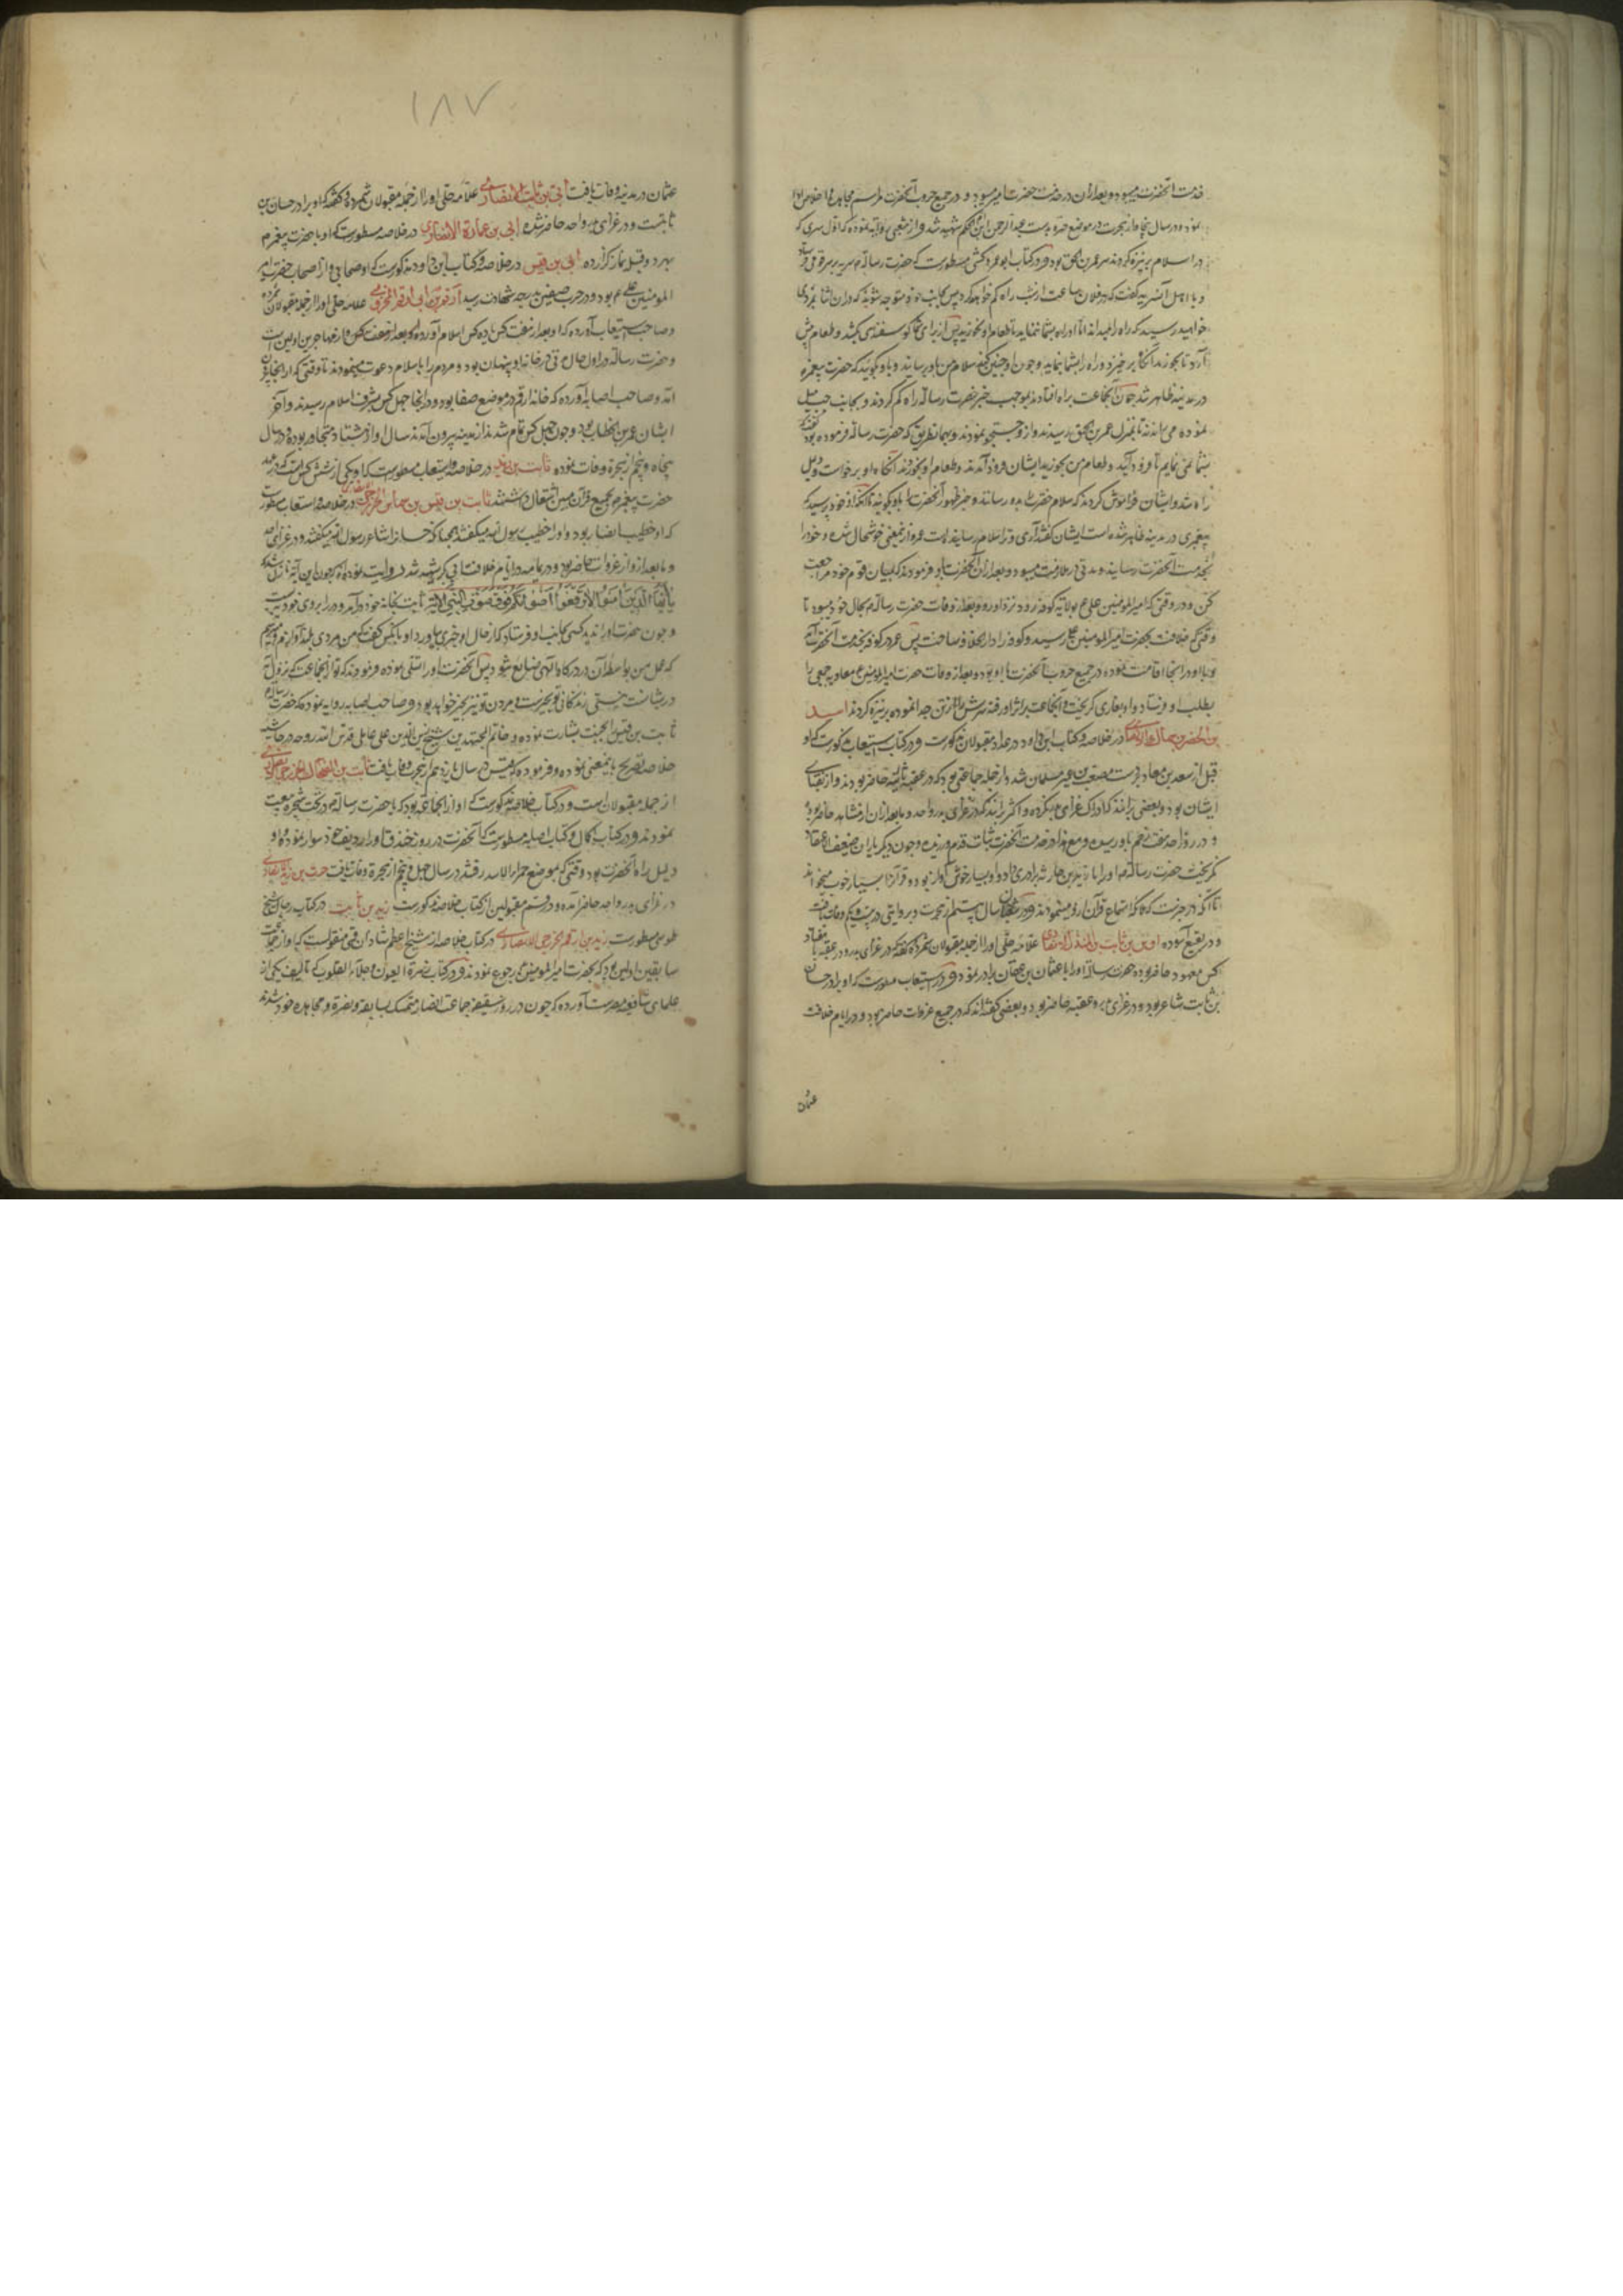 خدمت آنحضرت میبود و بعد از آن در خدمت حضرت امیر میبود و در جمیع حروب آنحضرت مراسم مجاهده و اخلاص ادا
نموده و در سال پنجاه از هجرت در موضع حره بدست عبد الرحمن ابن الحکم شهید شد و از شعبی روایة نموده که اول سری که
در اسلام بر نیزه کردند سر عمرو بن الحمق بود و در کتاب ابو عمرو کشی مسطورست که حضرت رسالة م سریه بر سر قومی فرستاد
و با اهل آن سریه گفت که در فلان ساعت از شب راه کم خواهید کرد پس بجانب خود متوجه شوید که در ان اثنا بمردی
خواهید رسید که راه را میداند اما او راه بشما ننماید تا طعام او نخورید پس از برای شما گوسفندی بکشد و طعام پیش
آرد تا بخورید آنگاه برخیزد و راه را بشما نماید و چون او چنین کند سلام من باو برسانید و باو بگویید که حضرت پیغمبر م
در مدینه ظاهر شد چون آن جماعت براه افتادند بموجب خبر حضرت رسالة راه کم کردند و بجانب چپ میل
نموده می راندند تا بمنزل عمرو بن الحمق رسیدند و از و جستجو نمودند و بهمان طریق که حضرت رسالة فرموده بود گفت که
شما نمی نمایم تا فرود آیید و طعام من بخورید ایشان فرود آمدند و طعام او بخوردند آنگاه او برخواست و دلیل
راه شد و ایشان فراموش کردند که سلام حضرت باو رسانند و خبر ظهور آنحضرت را باو بگویند تا آنکه او خود پرسید که
پیغمبری در مدینه ظاهر شده است ایشان گفتند آری و ترا سلام رسانیده است عمرو از این معنی خوشحال شده و خود را
بخدمت آنحضرت رسانید و مدتی در ملازمت میبود و بعد از ان آنحضرت باو فرمودند که بمیان قوم خود مراجعت
کن و در وقتی که امیر المؤمنین علی ع بولایة کوفه رود نزد او رو و بعد از وفات حضرت رسالة م بحال خود میبود تا
وقتی که خلافت بحضرت امیر المؤمنین علی رسید و کوفه را دار الخلافه ساخت پس عمرو در کوفه بخدمت آنحضرت آمد
و با او در انجا اقامت نموده در جمیع حروب آنحضرت با او بود و بعد از وفات حضرت امیر المؤمنین ع معاویه جمعی را
بطلب او فرستاد و او بغاری گریخت و آنجماعت بر اثر او رفته سرش را از تن جدا نموده بر نیزه کردند اسید
بن الحضیر بن سماک الانصاری در خلاصه و کتاب ابن داود در عداد مقبولان مذکورست و در کتاب استیعاب مذکورست که او
قبل از سعد بن معاذ بر دست مصعب بن عمیر مسلمان شد و از جمله جماعتی بود که در عقبه ثالثه حاضر بودند و از نقبای
ایشان بود و بعضی برانند که ادراک غزای بدر نکرده و اکثر برانند که در غزای بدر و احد و ما بعد از ان از مشاهد حاضر بوده
و در روز احد هفت زخم باو رسیده و مع هذا در خدمت آنحضرت ثبات قدم ورزیده و چون دیگر یاران ضعیف الاعتقاد
نگریخت حضرت رسالة م او را با زید بن حارثه برادری داد و او بسیار خوش آواز بوده و قرآنرا بسیار خوب میخواند
تا آنکه در خبرست که ملائکه استماع قرآن او مینمودند و در شعبان سال بیستم از هجرت و بروایتی در بیست و یکم وفات یافت
و در بقیع آسوده اوس بن ثابت بن المنذر الانصاری علامه حلی او را از جمله مقبولان شمرده گفته که در غزای بدر و در عقبه با هفتاد
کس معهود حاضر بوده حضرت رسالة او را با عثمان بن عفان برادر نموده و در استیعاب مسطورست که او برادر حسان
بن ثابت شاعر بود و در غزای بدر و عقبه حاضر بود و بعضی گفته اند که در جمیع غزوات حاضر بود و در ایام خلافت
عثمان
١٨٧
عثمان در مدینه وفات یافت ابی بن ثابت الانصاری علامه حلی او را از جمله مقبولان شمرده و گفته که او برادر حسان بن
ثابتست و در غزای بدر و احد حاضر شده ابی بن عمارة الانصاری در خلاصه مسطورست که او با حضرت پیغمبر م
بهر دو قبله نماز گزارده ابی بن قیس در خلاصه و کتاب ابن داود مذکورست که او صحابی و از اصحاب حضرت امیر
المؤمنین علی ع بود و در حرب صفین بدرجه شهادت رسید ارقم بن ابی ارقم المخزومی علامه حلی او را از جمله مقبولان شمرده
و صاحب استیعاب آورده که او بعد از هفت کس یا ده کس اسلام آورده و او از مهاجرین اولین است
و حضرت رسالة در اول حال مدتی در خانه او پنهان بود و مردم را باسلام دعوت مینمودند تا وقتی که از انجا بیرون
آمد و صاحب اصابه آورده که خانه ارقم در موضع صفا بود و در انجا چهل کس بشرف اسلام رسیدند و آخر
ایشان عمر بن الخطاب بود و چون چهل کس تمام شدند از مدینه بیرون آمدند سال او از هشتاد متجاوز بوده و در سال
پنجاه و پنجم از هجرة وفات نموده ثابت بن زید در خلاصه و استیعاب مسطورست که او یکی از شش کس است که در عهد
حضرت پیغمبر م بجمع قرآن مبین اشتغال داشتند ثابت بن قیس بن شماس الخزرجی الانصاری در خلاصه و استیعاب مسطورست
که او خطیب انصار بود و او را خطیب رسول الله میگفتند همچنانکه حسانرا شاعر رسول الله میگفتند و در غزای احد
و ما بعد از و از غزوات حاضر بود و در یمامه در ایام خلافت ابی بکر شهید شد و روایت نموده اند که چون این آیه نازل شد که
یا ایها الذین آمنوا لا ترفعوا اصواتکم فوق صوت النبی الایة ثابت بخانه خود درآمد و در بروی خود بست
و چون حضرت او را ندید کسی بجانب او فرستاد که از حال او خبری بیاورد او با انکس گفت که من مردی بلند آوازم و میترسم
که عمل من بواسطه آن در درگاه الهی ضایع شود پس آنحضرت او را تسلی نموده فرمودند که تو از آنجماعت که نزول آیه
در شان ایشانست نیستی زندگانی تو بخیرست و مردن تو نیز بخیر خواهد بود و صاحب اصابه روایه نموده که حضرت رسالة م
ثابت بن قیس را بجنت بشارت نموده و خاتم المجتهدین شیخ زین الدین علی عاملی قدس الله روحه در حاشیه
خلاصه تصریح باین معنی نموده و فرموده که ثابت بن قیس در سال یازدهم از هجرت وفات یافت ثابت بن الضحاک الخزرجی الانصاری
از جمله مقبولان است و در کتاب خلاصه مذکورست که او از آنجماعتی بود که با حضرت رسالة م در تحت شجره بیعت
نمودند و در کتاب اکمال و کتاب اصابه مسطورست که آنحضرت در روز خندق او را ردیف خود سوار نموده و او
دلیل راه آنحضرت بود وقتی که بموضع حمراء الاسد رفتند در سال چهل و پنجم از هجرة وفات یافت
در غزای بدر و احد حاضر آمده و در قسم مقبولین از کتاب خلاصه مذکورست زید بن ثابت در کتاب رجال شیخ
طوسی مسطورست زید بن ارقم الخزرجی الانصاری در کتاب خلاصه از شیخ اعظم فضل بن شاذان قمی منقولست که او از جماعت
سابقین اولین بود که بحضرت امیر المؤمنین ع رجوع نمودند و در کتاب نضرة العیون و جلاء القلوب که تالیف یکی از
علمای شافعیه مصرست آورده که چون در روز سقیفه جماعت انصار متمسک بسابقه و نصرة و مجاهده خود شدند